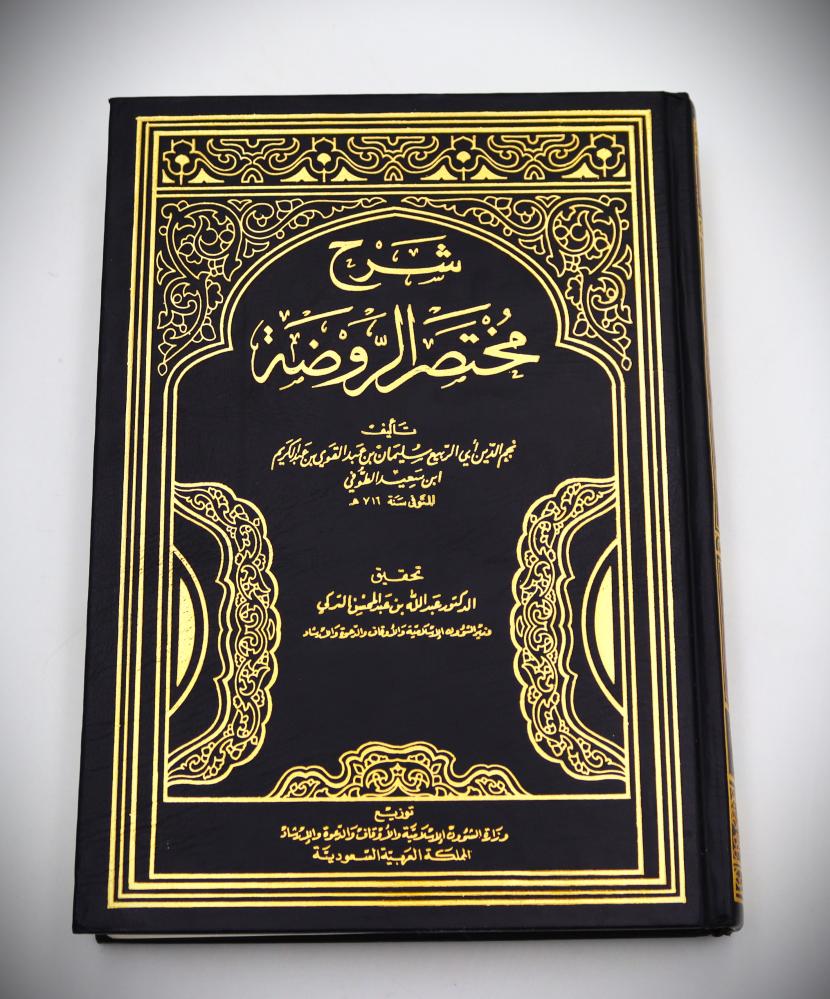 شَرْح
مُخْتَصَر الرَّوْضَة
تأليف
نجم الدين أبي الربيع سُليمان بن عَبد القوي بن عَبد الكريم
ابن سَعِيد الطوفي
المتوفى سَنة ٧١٦ هـ
تحقيق
الدكتور عبد الله بن عبد المحسن التركي
وزير الشؤون الإسلامية والأوقاف والدعوة والإرشاد
توزيع
وزارة الشؤون الإسلامية والأوقاف والدعوة والإرشاد
المملكة العربية السعودية